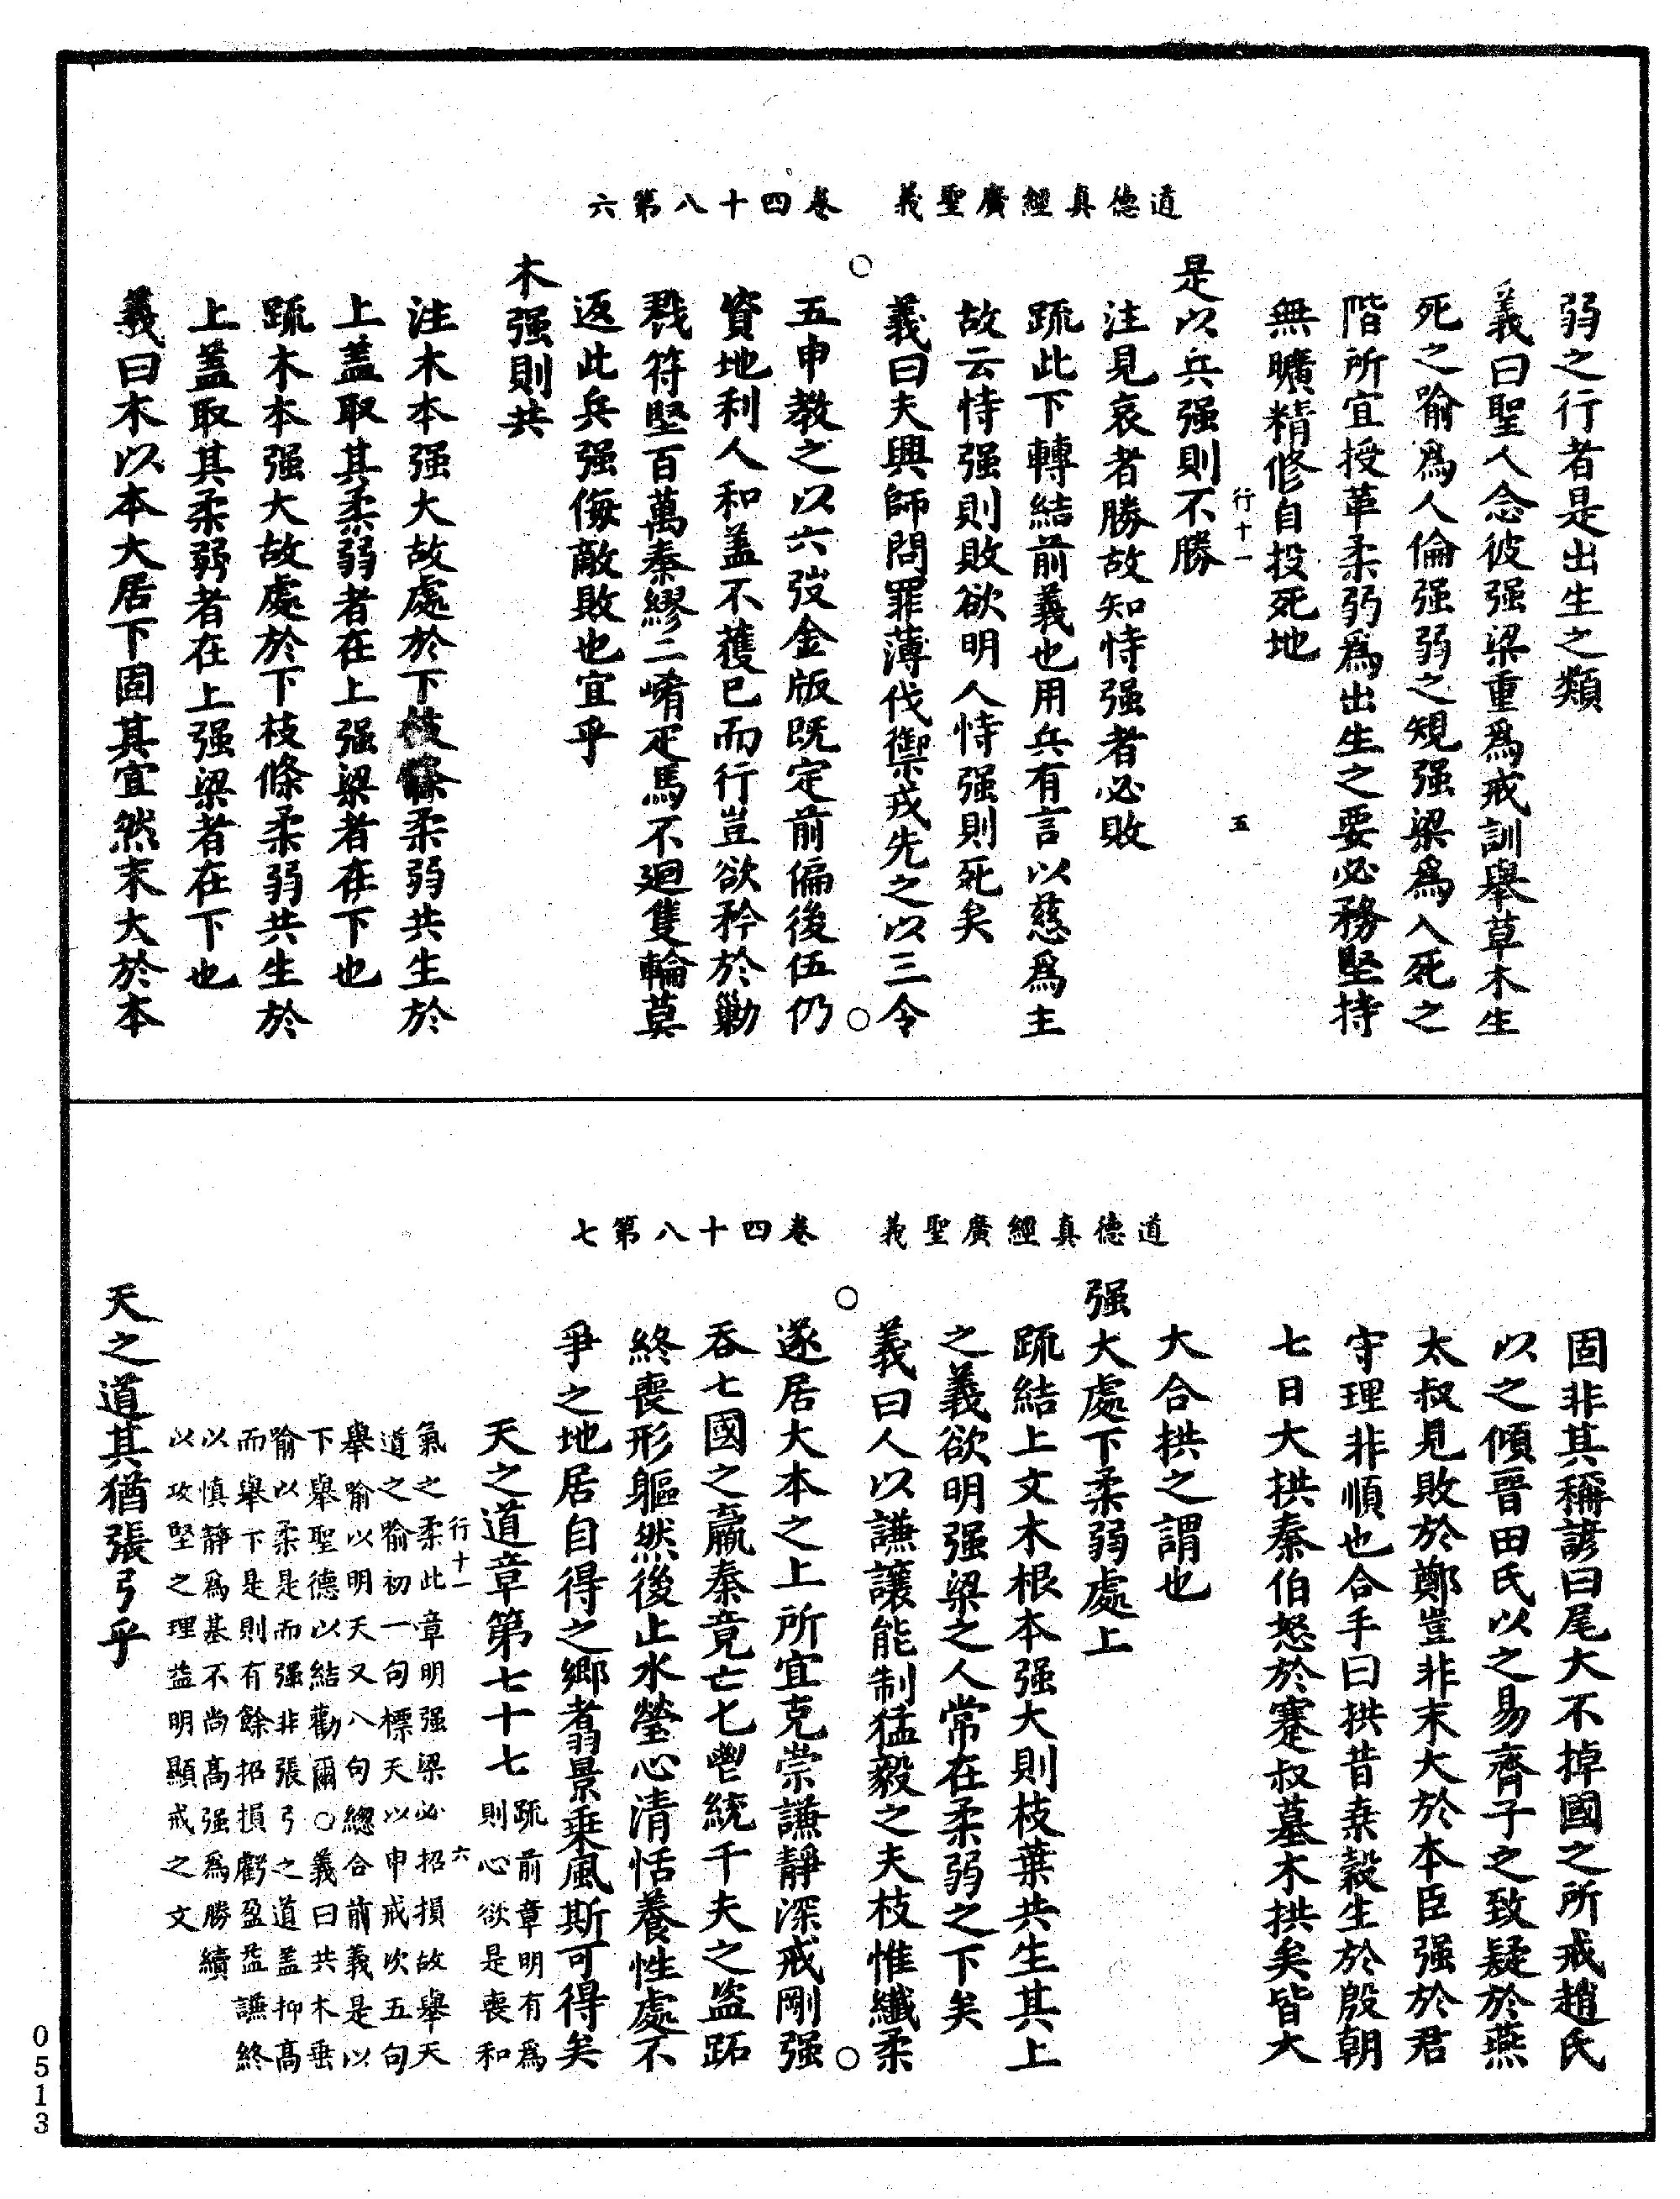 道德真經廣聖義　卷四十八第六
弱之行者是出生之類
義曰聖人念彼强梁重爲戒訓舉草木生
死之喻爲人倫强弱之規强梁爲入死之
階所宜授革柔弱爲出生之要必務堅持
無曠精修自投死地
行十一　五
是以兵强則不勝
注見哀者勝故知恃强者必敗
疏此下轉結前義也用兵有言以慈爲主
故云恃强則敗欲明人恃强則死矣
義曰夫興師問罪薄伐禦戎先之以三令
五申教之以六弢金版既定前偏後伍仍
資地利人和盖不獲已而行豈欲矜於勦
戮符堅百萬秦繆二崤疋馬不廻隻輪莫
返此兵强侮敵敗也宜乎
木强則共
注木本强大故處於下枝條柔弱共生於
上盖取其柔弱者在上强梁者在下也
疏木本强大故處於下枝條柔弱共生於
上蓋取其柔弱者在上强梁者在下也
義曰木以本大居下固其宜然末大於本
道德真經廣聖義　卷四十八第七
固非其稱諺曰尾大不掉國之所戒趙氏
以之傾晋田氏以之易齊子之致疑於燕
太叔見敗於鄭豈非末大於本臣强於君
守理非順也合手曰拱昔桒穀生於殷朝
七日大拱秦伯怒於蹇叔墓木拱矣皆大
大合拱之謂也
强大處下柔弱處上
疏結上文木根本强大則枝葉共生其上
之義欲明强梁之人常在柔弱之下矣
義曰人以謙讓能制猛毅之夫枝惟纖柔
遂居大本之上所宜克崇謙靜深戒剛强
吞七國之嬴秦竟亡七鬯統千夫之盜跖
終喪形軀然後止水瑩心清恬養性處不
爭之地居自得之鄉翥景乗風斯可得矣
天之道章第七十七 疏前章明有爲
則心欲是喪和
行十一　六
氣之柔此章明强梁必招損故舉天
道之喻初一句標天以申戒次五句
舉喻以明天又八句總合前義是以
下舉聖德以結勸爾○義曰共木垂
喻以柔是而强非張弓之道盖抑高
而舉下是則有餘招損虧盈益謙終
以慎靜爲基不尚高强爲勝續
以攻堅之理益明顯戒之文
天之道其猶張弓乎
0513